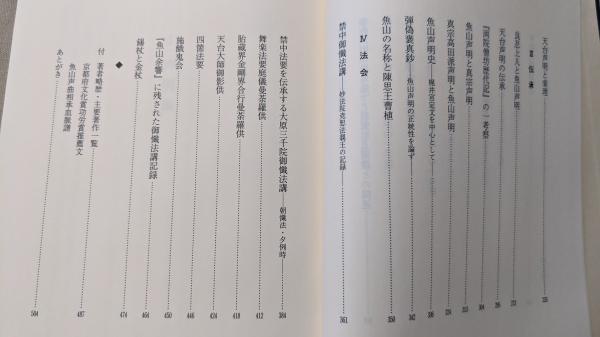 天台声明と常連
Ⅲ 伝承
良忍上人と魚山声明
天台声明の伝承
『両院僧坊歴代記』の一考察
魚山声明と真宗声明
真宗高田派声明と魚山声明
魚山声明史――梶井宮梵文を中心として――
弾偽褒真鈔――魚山声明の正統性を論ず
魚山の名称と陳思王曹植 350
Ⅳ 法会
禁中御懺法講――妙法院堯恕法親王の記録 361
禁中法要を伝承する大原三千院御懺法講――朝懺法・夕例時―― 384
舞楽法要庭儀曼荼羅供 412
胎蔵界金剛界合行曼荼羅供 418
天台大師御影供 424
四箇法要 446
施餓鬼会 450
『魚山余響』に残された御懺法講記録 464
錫杖と金杖 474
◆
付 著者略歴・主要著作一覧
京都府文化賞功労賞推薦文
魚山声曲相承血脈譜 487
あとがき 504